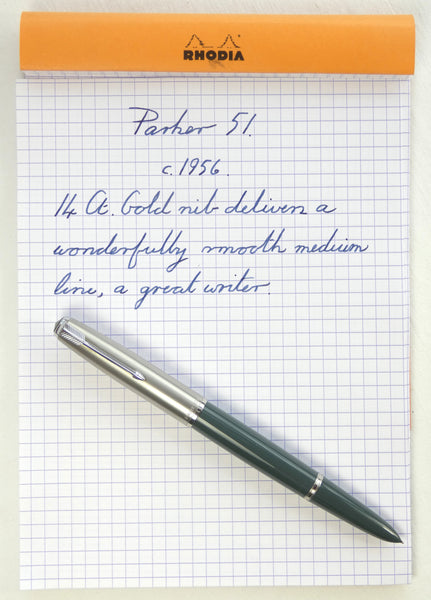 RHODIA
Parker 51.
c. 1956.
14 Ct. Gold nib delivers a
wonderfully smooth medium
line, a great writer.